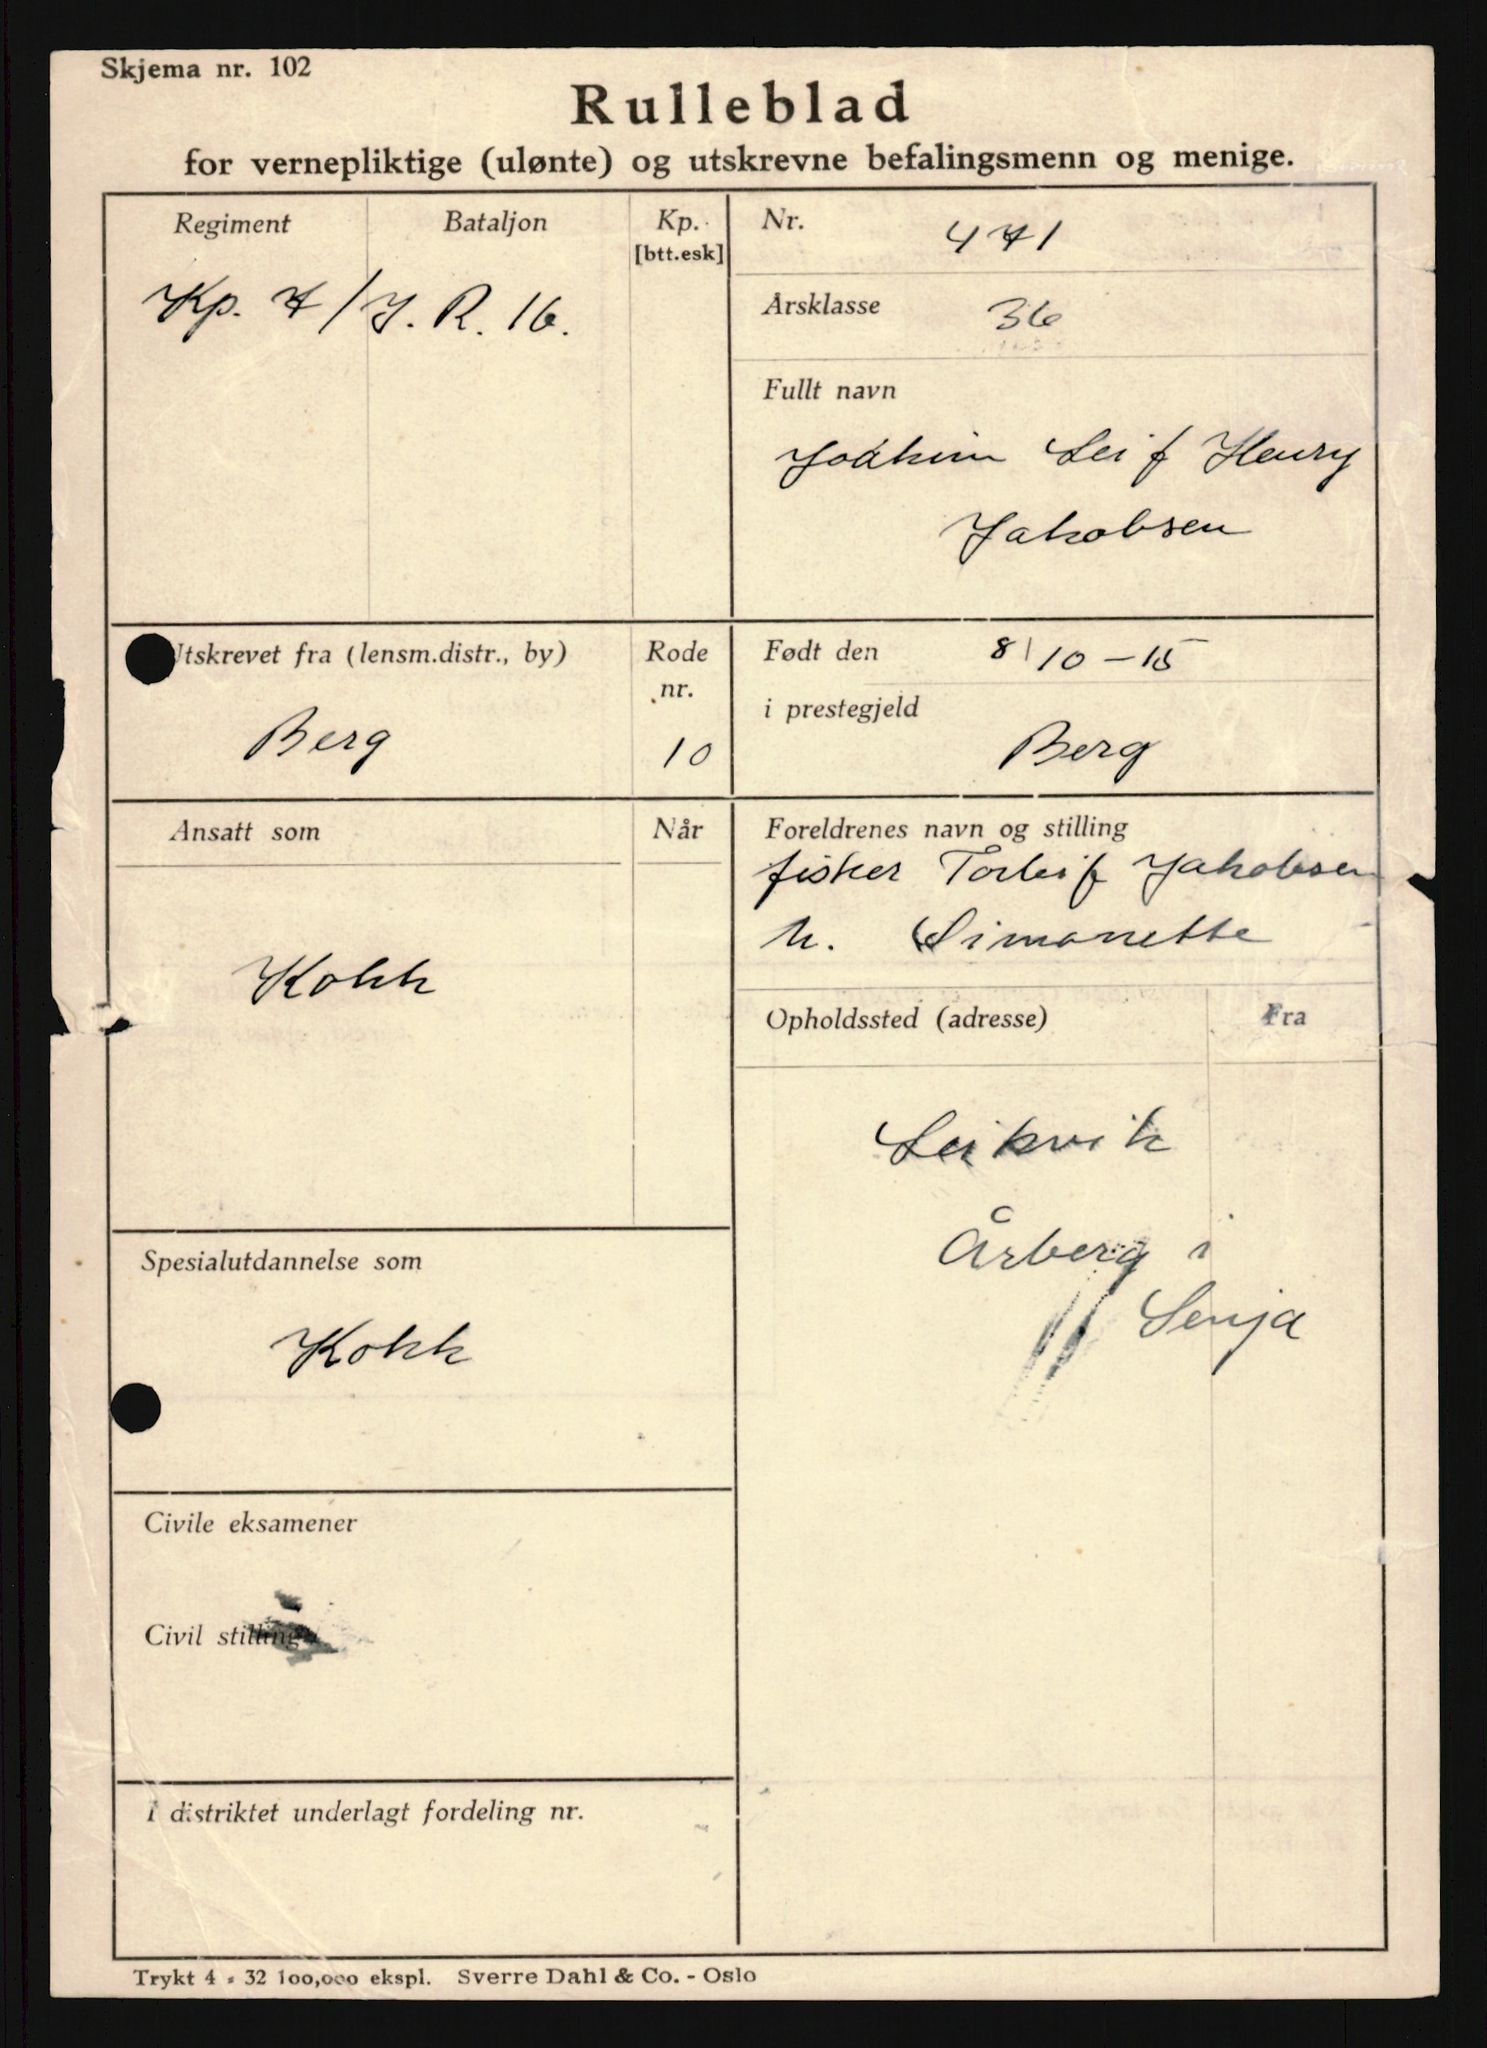 Skjema nr. 102
Rulleblad
for vernepliktige (ulønte) og utskrevne befalingsmenn og menige.
Regiment Bataljon Kp. [btt.esk]
Kp. 7/J.R. 16.
Nr. 471
Årsklasse 36
Fullt navn
Joakim Leif Henry
Jakobsen
Utskrevet fra (lensm.distr., by) Rode nr.
Berg 10
Født den 8/10-15
i prestegjeld
Berg
Ansatt som Når
Kokk
Foreldrenes navn og stilling
fisker Torleif Jakobsen
h. Simonette
Opholdssted (adresse) Fra
Leikvik
Årberg i
Senja
Spesialutdannelse som
Kokk
Civile eksamener
Civil stilling
I distriktet underlagt fordeling nr.
Trykt 4 - 32 100,000 ekspl. Sverre Dahl & Co. - Oslo